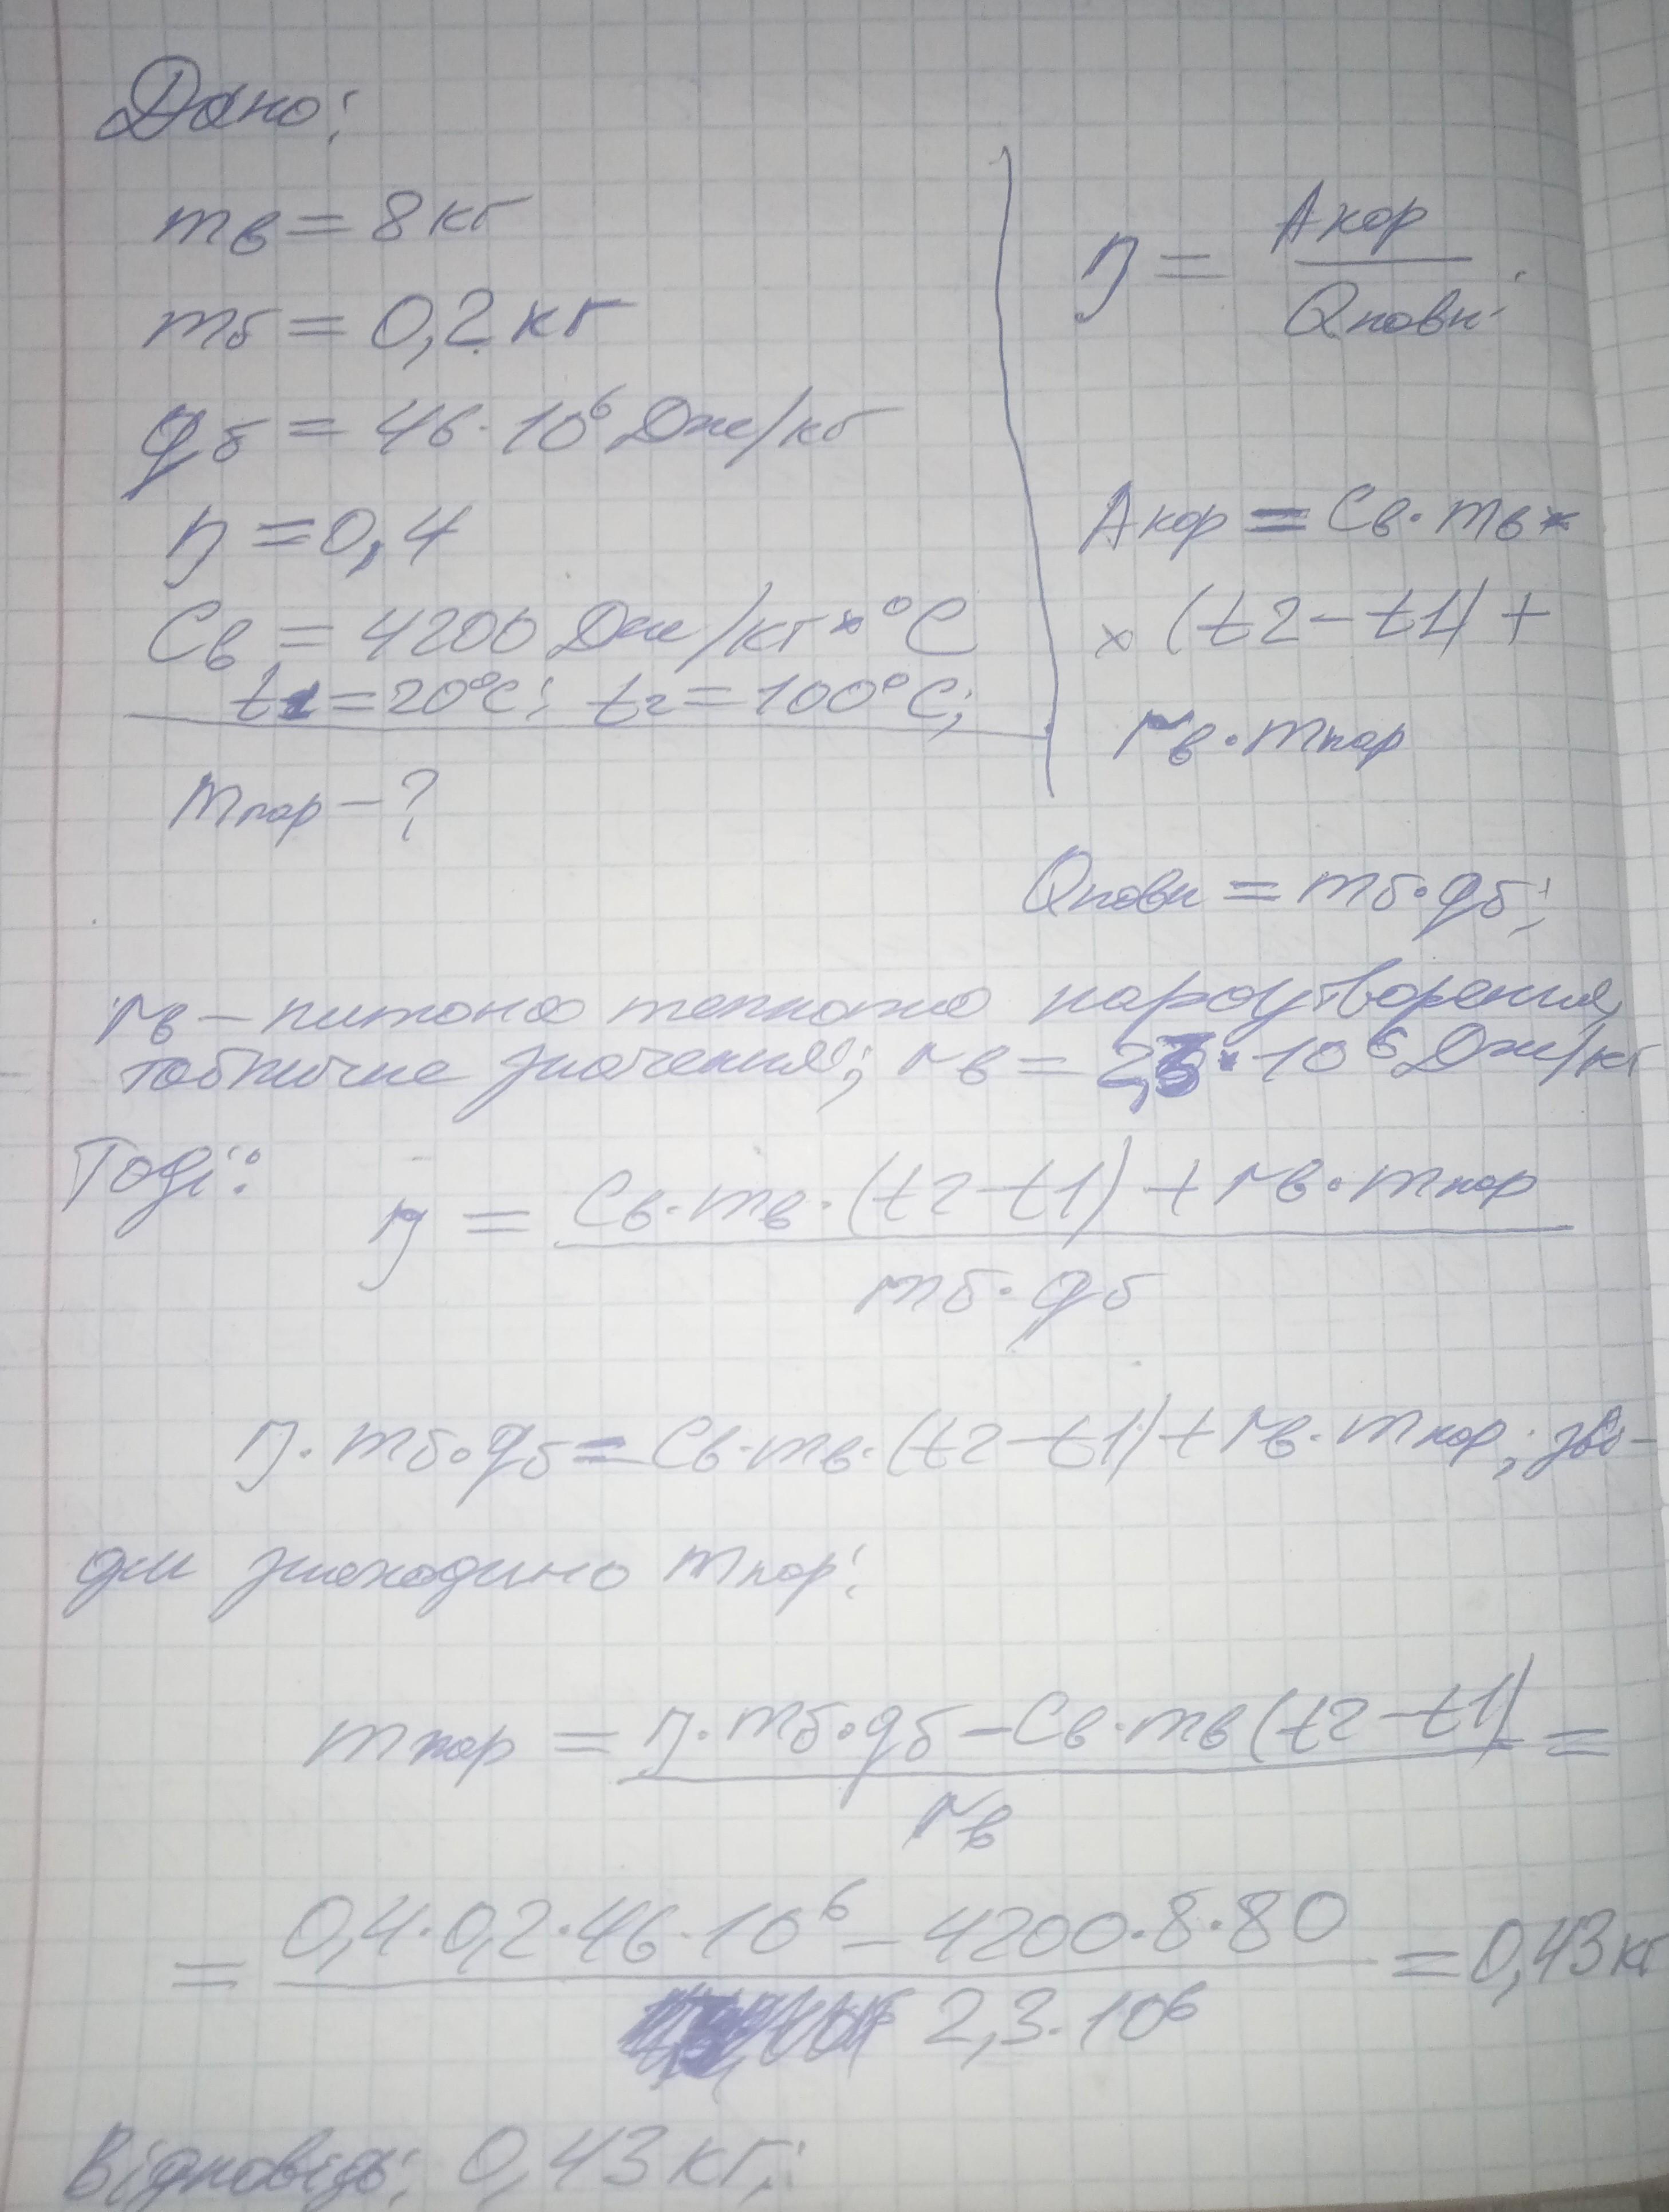 Дано:
mв = 8 кг
mб = 0,2 кг
qб = 46·10⁶ Дж/кг
η = 0,4
Cв = 4200 Дж/кг × °C
t1 = 20°C; t2 = 100°C;
mпар – ?
η = Aкор / Qповн.
Aкор = Cв·mв ×
× (t2 – t1) +
rв·mпар
Qповн = mб·qб;
rв – питома теплота пароутворення,
табличне значення; rв = 2,3·10⁶ Дж/кг
Тоді:
η = (Cв·mв·(t2 – t1) + rв·mпар) / (mб·qб)
η·mб·qб = Cв·mв·(t2 – t1) + rв·mпар; зві-
дси знаходимо mпар:
mпар = (η·mб·qб – Cв·mв(t2 – t1)) / rв =
= (0,4·0,2·46·10⁶ – 4200·8·80) / (2,3·10⁶) = 0,43 кг
Відповідь: 0,43 кг;